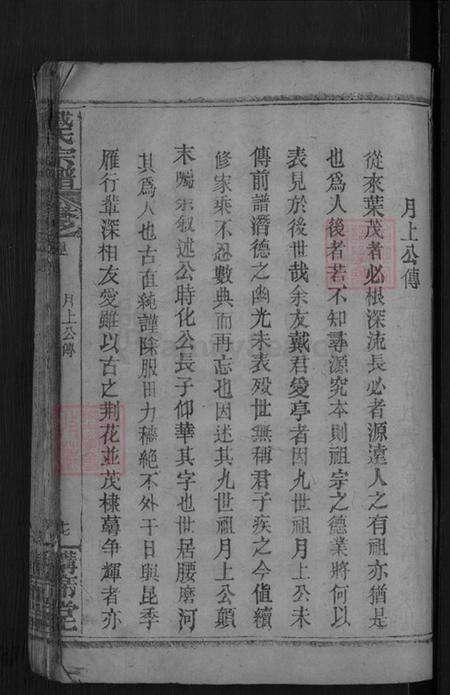 月上公傳
從來葉茂者必根深流長必者源遠人之有祖亦猶是
也爲人後者若不知尋源究本則祖宗之德業將何以
表見於後世哉余友戴君愛亭者因九世祖月上公未
傳前譜潛德之幽光未表歿世無稱君子疾之今值續
修家乘不忍數典而再忘也因述其九世祖月上公顛
末囑余叙述公時化公長子仰華其字也世居腰磨河
其爲人也古直純謹除服田力穡絶不外干日與昆季
雁行輩深相友愛雖以古之荆花並茂棣萼争輝者亦
戴氏宗譜
月上公傳